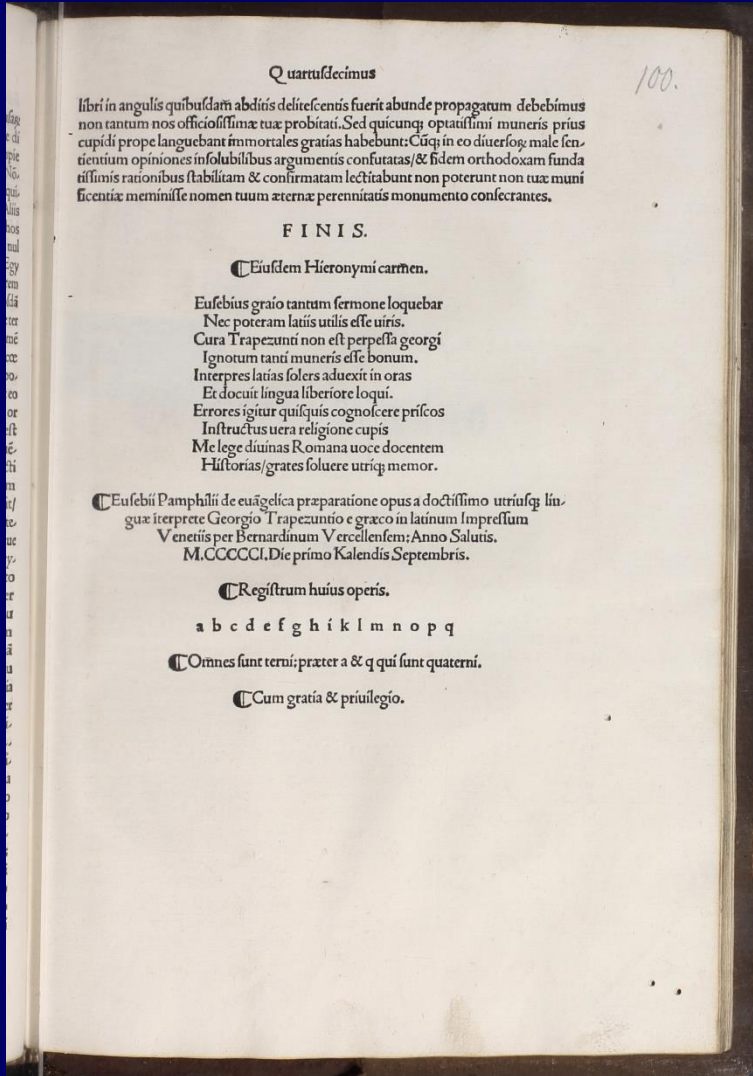 Quartusdecimus
100.
libri in angulis quibusdam̃ abditis delitescentis fuerit abunde propagatum debebimus
non tantum nos officiosissimæ tuæ probitati. Sed quicunq; optatissimi muneris prius
cupidi prope languebant immortales gratias habebunt: Cũq; in eo diuersoꝝ male sen-
tientium opiniones insolubilibus argumentis confutatas/& fidem orthodoxam funda
tissimis rationibus stabilitam & confirmatam lectitabunt non poterunt non tuæ muni
ficentiæ meminisse nomen tuum æternæ perennitatis monumento consecrantes.
FINIS.
⸿Eiusdem Hieronymi carm̃en.
Eusebius graio tantum sermone loquebar
Nec poteram latiis utilis esse uiris.
Cura Trapezunti non est perpessa georgi
Ignotum tanti muneris esse bonum.
Interpres latias solers aduexit in oras
Et docuit lingua liberiore loqui.
Errores igitur quisquis cognoscere priscos
Instructus uera religione cupis
Me lege diuinas Romana uoce docentem
Historias/grates soluere utriq; memor.
⸿Eusebii Pamphilii de euãgelica præparatione opus a doctissimo utriusq; lin-
guæ ĩterprete Georgio Trapezuntio e græco in latinum Impressum
Venetiis per Bernardinum Vercellensem: Anno Salutis.
M.CCCCCI. Die primo Kalendis Septembris.
⸿Registrum huius operis.
a b c d e f g h i k l m n o p q
⸿Om̃nes sunt terni; præter a & q qui sunt quaterni.
⸿Cum gratia & priuilegio.